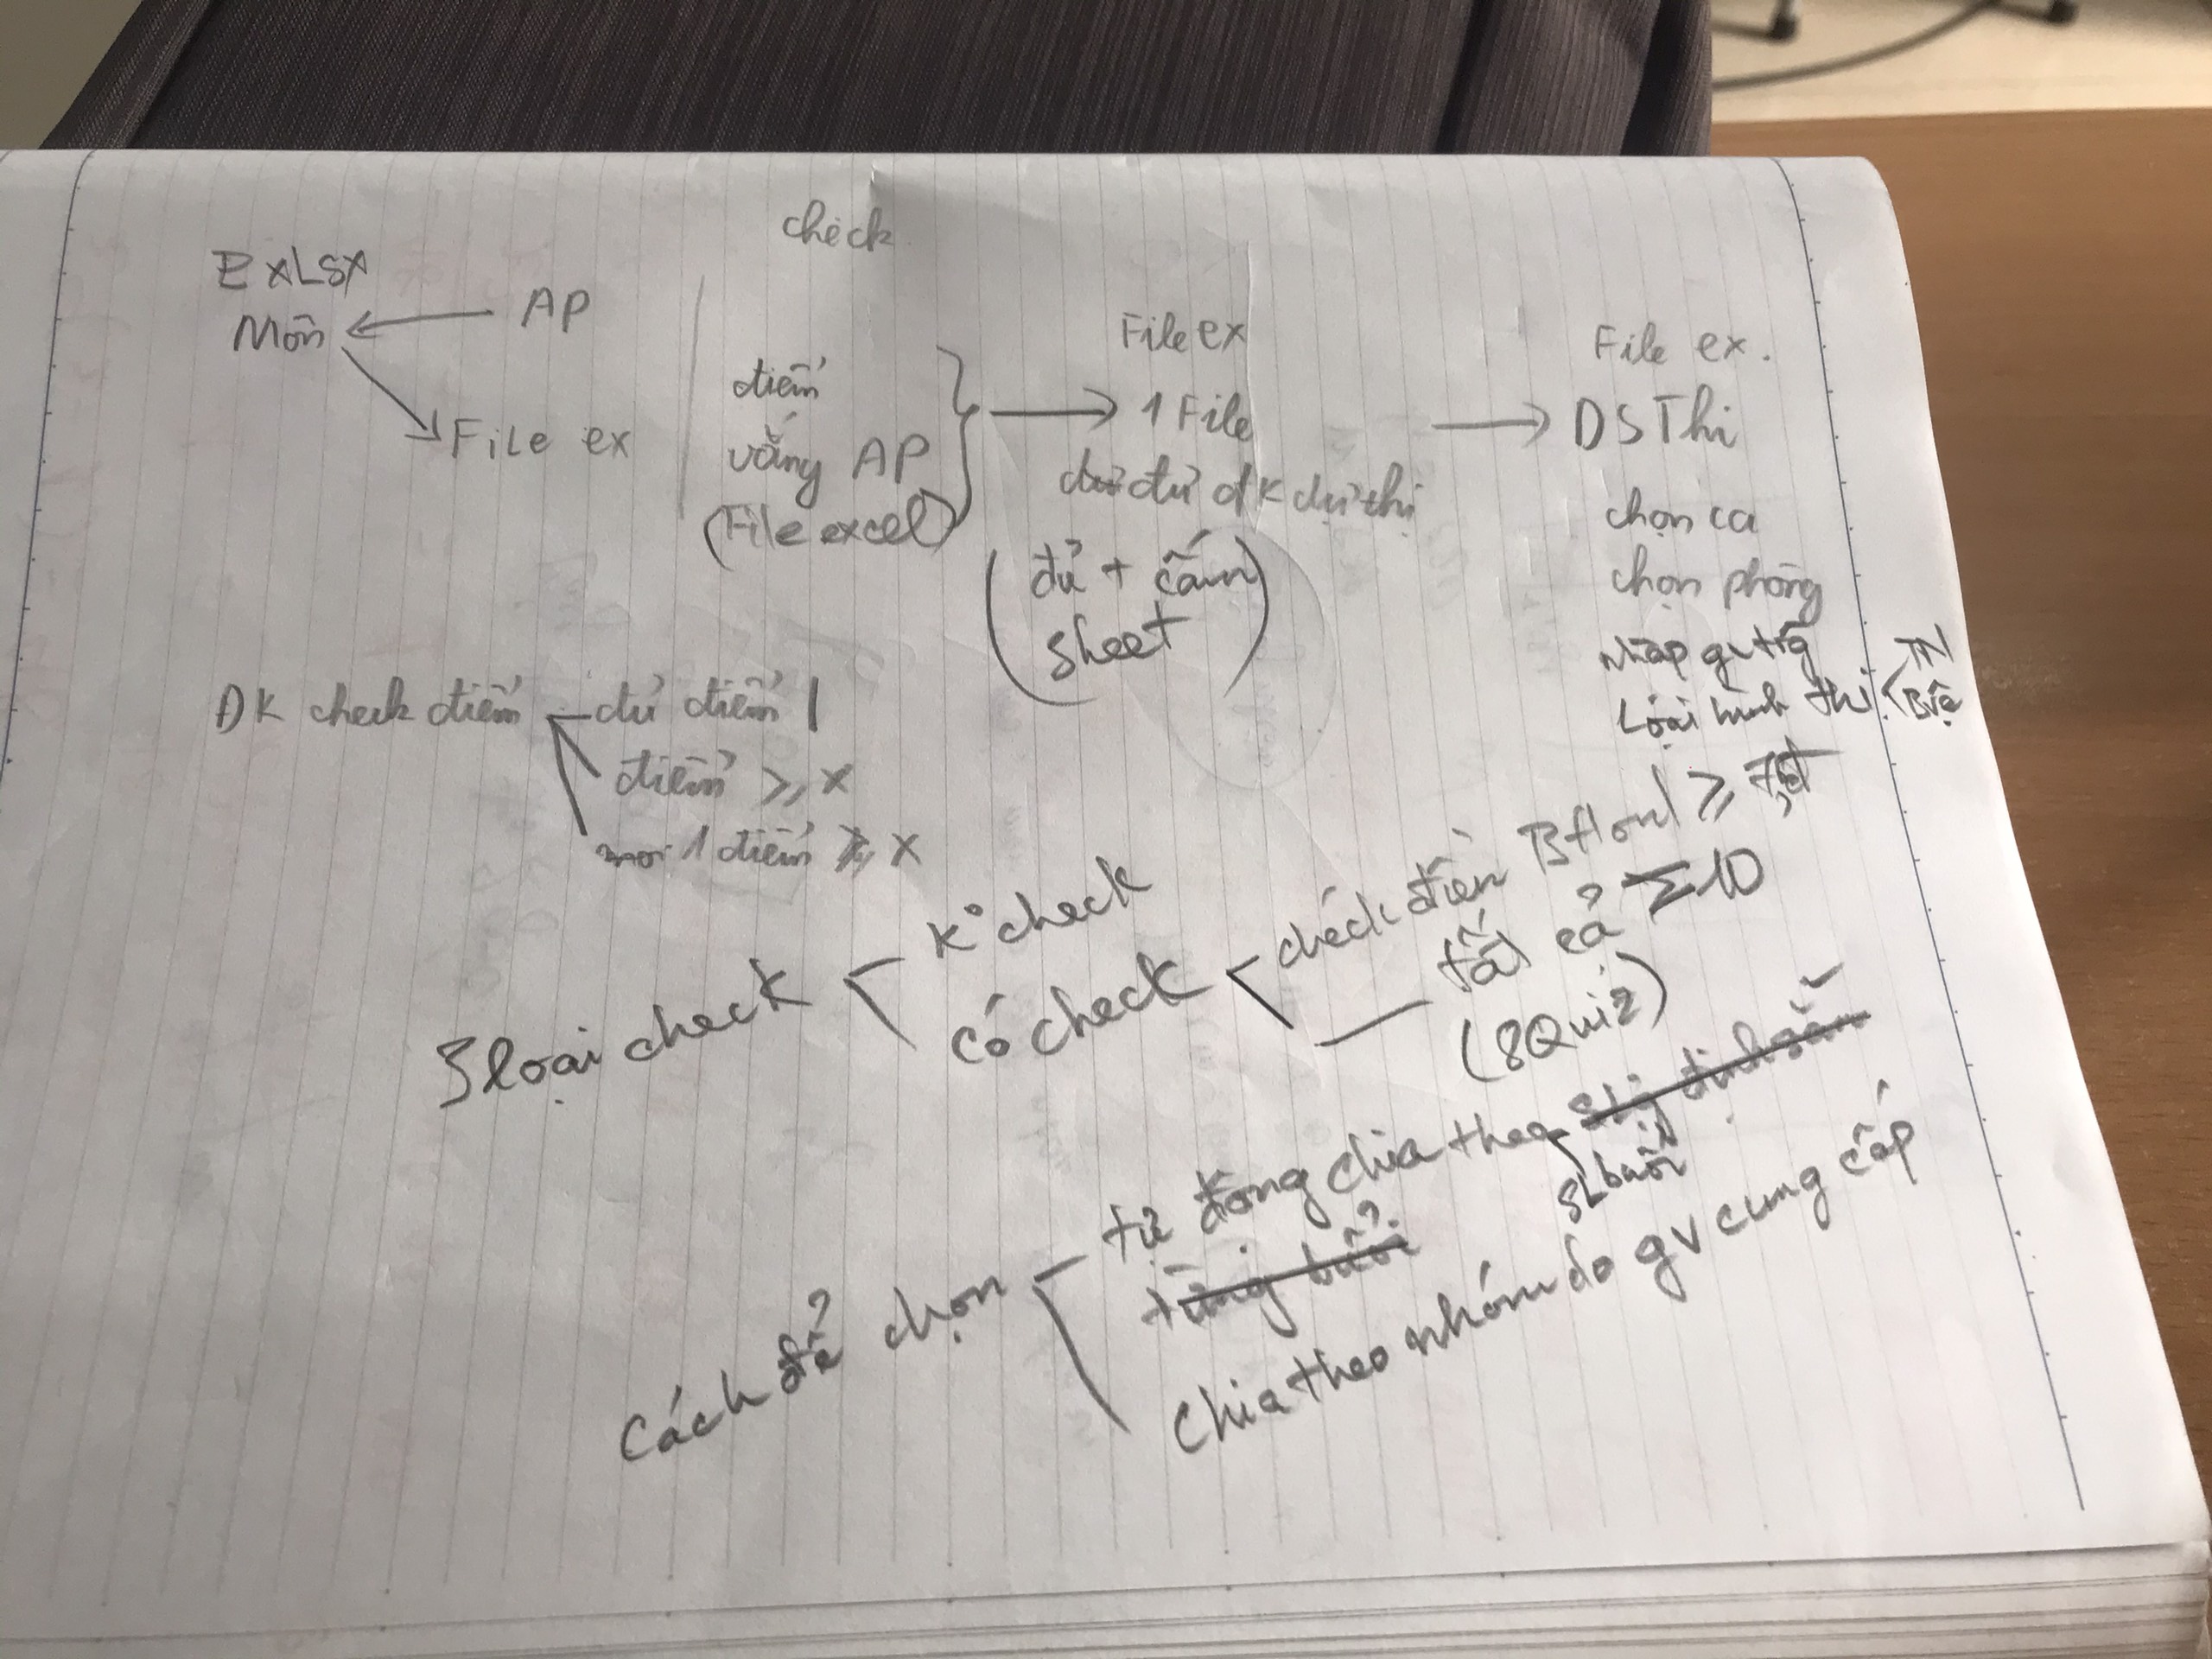 check
ExLSx
Môn ← AP
File ex
điểm
vắng AP
(File excel)
File ex
1 File
đủ đk dự thi
(đủ + cấm
sheet)
File ex.
DS Thi
chọn ca
chọn phòng
nhập gv
Loại hình thi TN
B.vệ
ĐK check điểm đủ điểm
điểm ≥ x
1 điểm ≥ x
3 loại check
K° check
có check
check điểm ≥
tất cả 10
(8Quiz)
Cách để chọn
tự động chia theo định sẵn
SL buổi
từng buổi
Chia theo nhóm do gv cung cấp